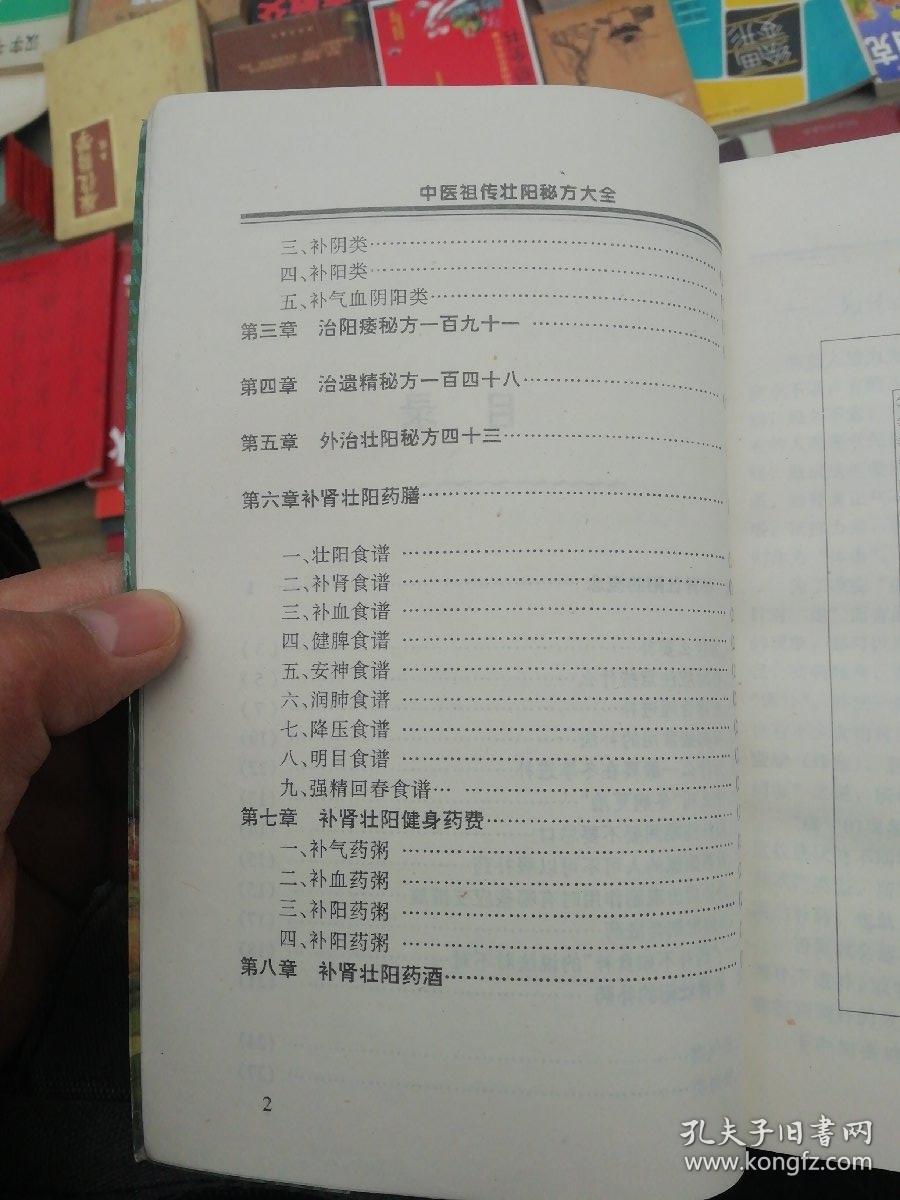 中医祖传壮阳秘方大全
三、补阴类
四、补阳类
五、补气血阴阳类
第三章 治阳痿秘方一百九十一
第四章 治遗精秘方一百四十八
第五章 外治壮阳秘方四十三
第六章补肾壮阳药膳
一、壮阳食谱
二、补肾食谱
三、补血食谱
四、健脾食谱
五、安神食谱
六、润肺食谱
七、降压食谱
八、明目食谱
九、强精回春食谱
第七章 补肾壮阳健身药费
一、补气药粥
二、补血药粥
三、补阳药粥
四、补阳药粥
第八章 补肾壮阳药酒
2
孔夫子旧书网
www.kongfz.com